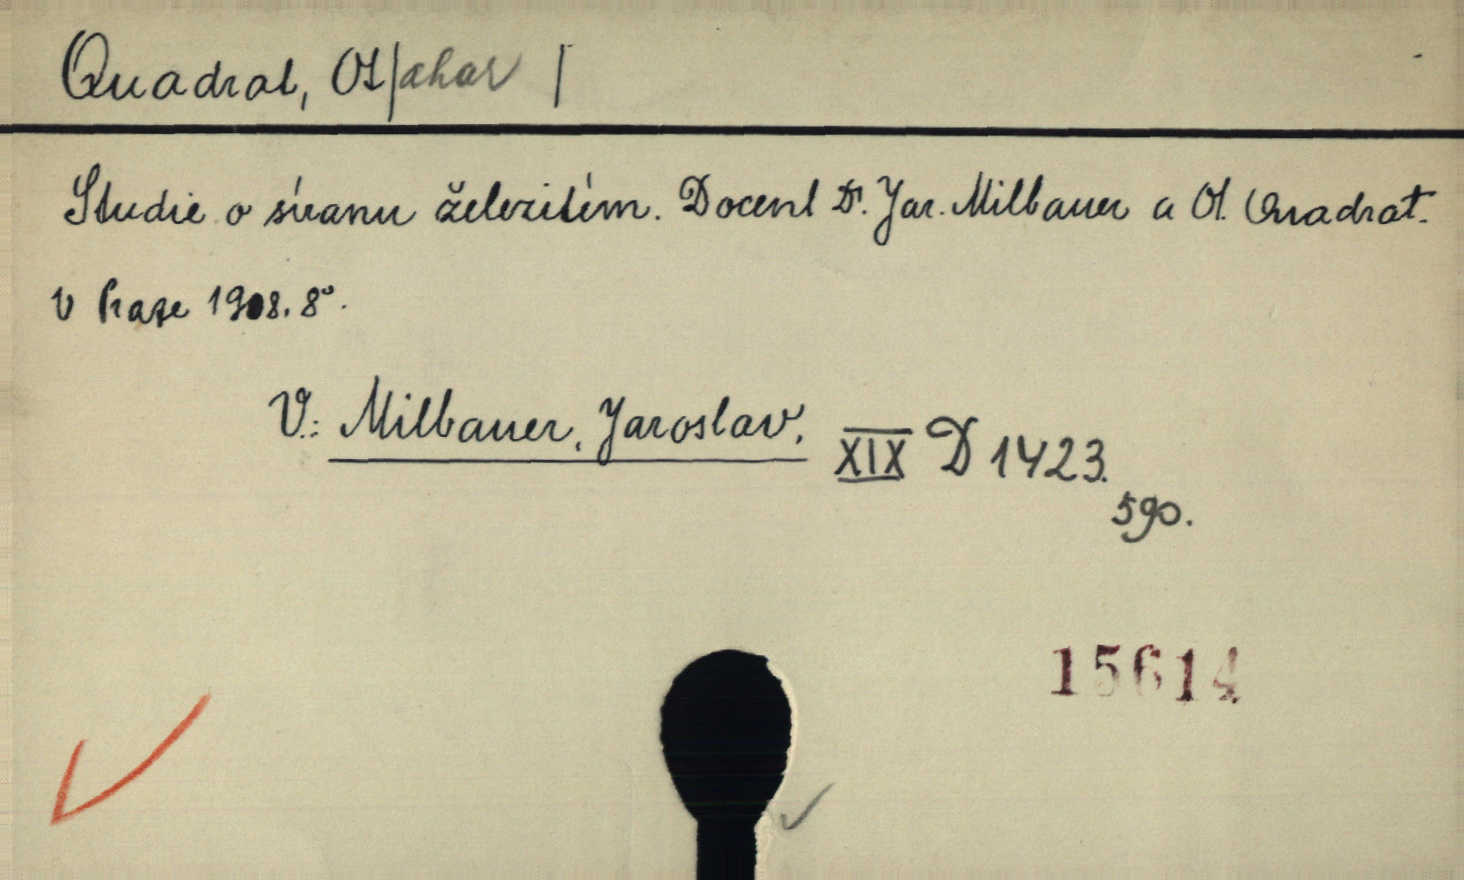 Quadrat, Ot/akar /
Studie o síranu železitém. Docent Dr. Jar. Milbauer a Ot. Quadrat.
V Praze 1908. 8°.
V.: Milbauer, Jaroslav.
XIX D 1423.
590.
15614